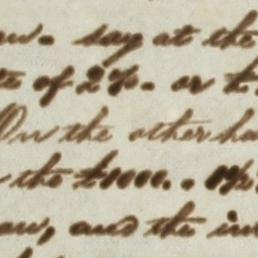 say at the
of 2%. or
On the other
the £1000.. 1½%
and the in